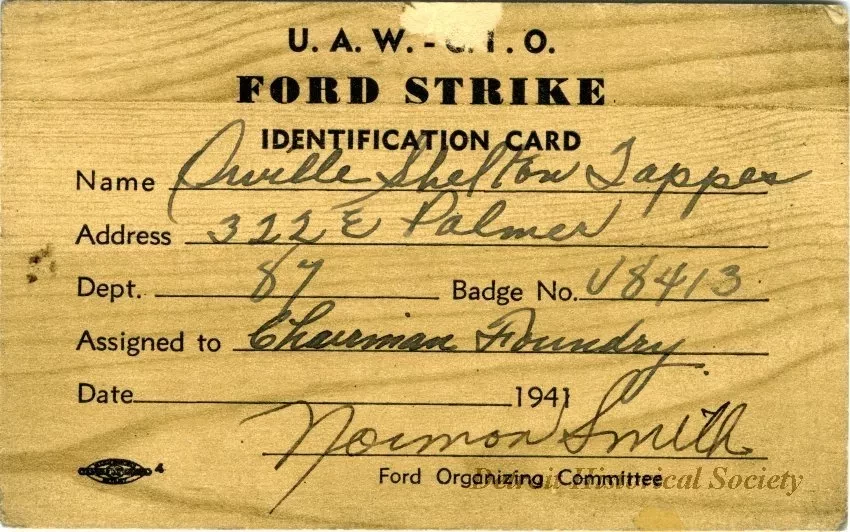 U. A. W. - C. I. O.
FORD STRIKE
IDENTIFICATION CARD
Name Orville Shelton Tappes
Address 322 E Palmer
Dept. 87 Badge No. U8413
Assigned to Chairman Foundry.
Date 1941
Norman Smith
Ford Organizing Committee
Detroit Historical Society
4